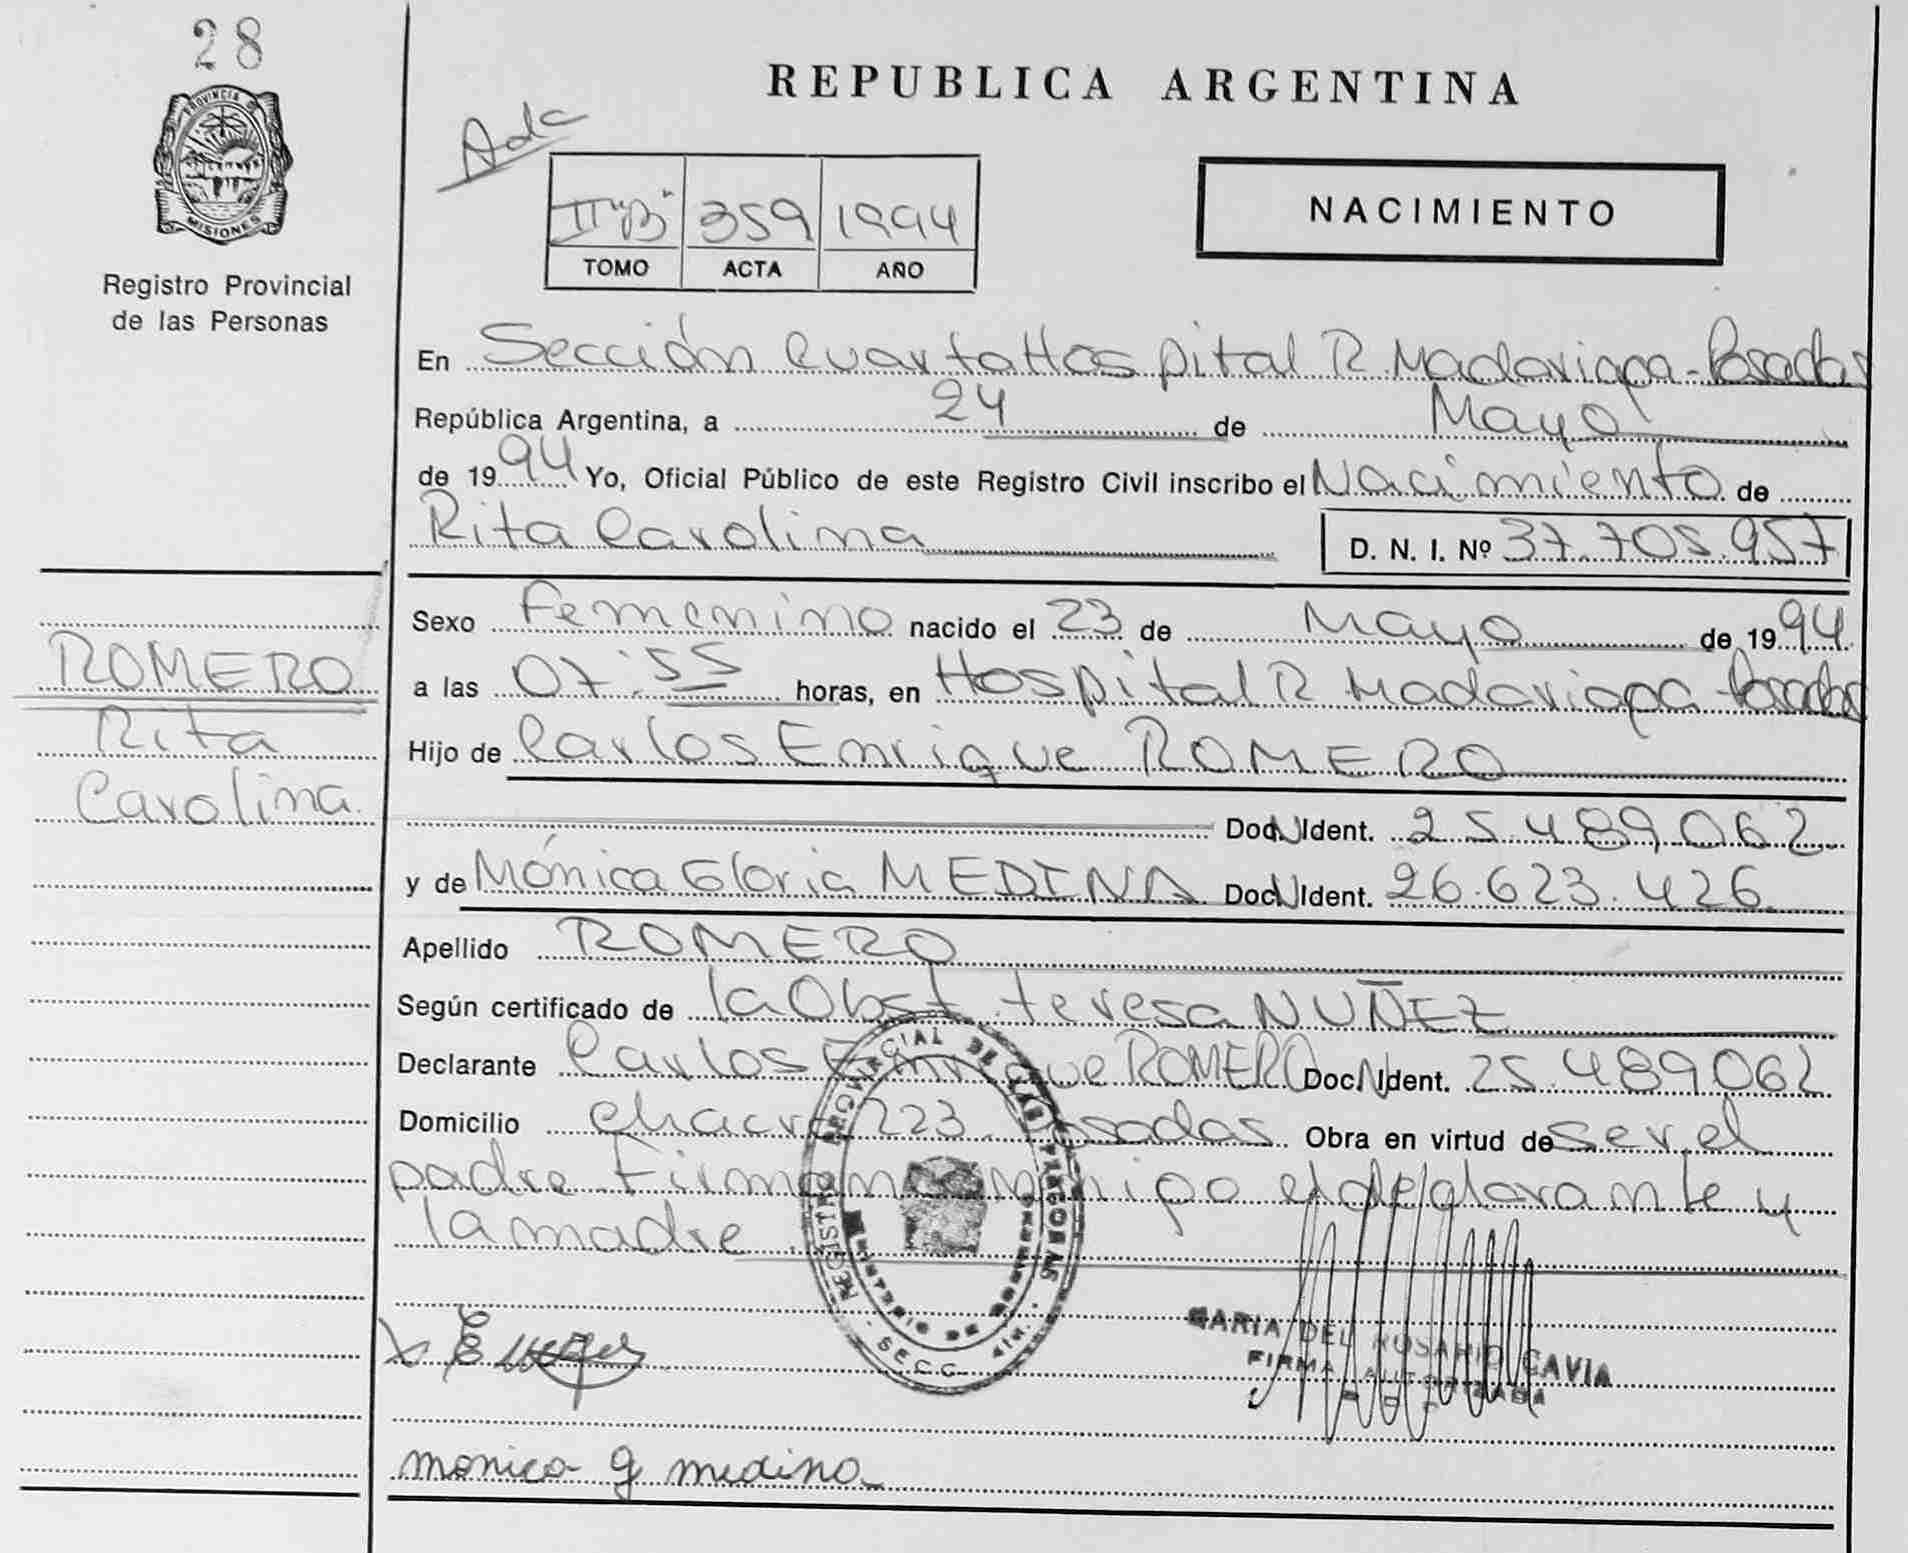 28
PROVINCIA DE
MISIONES
Registro Provincial
de las Personas
REPUBLICA ARGENTINA
II "B" 359 1994
TOMO ACTA AÑO
NACIMIENTO
En Sección Cuarta Hospital R Madariaga - Posadas
República Argentina, a 24 de Mayo
de 1994 Yo, Oficial Público de este Registro Civil inscribo el Nacimiento de
Rita Carolina D. N. I. Nº 37.705.957
Sexo Femenino nacido el 23 de Mayo de 1994
a las 07:55 horas, en Hospital R Madariaga Posadas
Hijo de Carlos Enrique ROMERO
Doc N Ident. 25.489.062
y de Mónica Gloria MEDINA Doc N Ident. 26.623.426
Apellido ROMERO
Según certificado de la Obst. teresa NUÑEZ
Declarante Carlos Enrique ROMERO Doc N Ident. 25.489062
Domicilio chacra 223 Posadas Obra en virtud de ser el
padre Firman conmigo el declarante y
la madre.
ROMERO
Rita
Carolina.
REGISTRO PROVINCIAL DE LAS PERSONAS
MINISTERIO DE GOBIERNO
SECC. 4ta.
MARIA DEL ROSARIO GAVIA
FIRMA AUTORIZADA
monica g medina